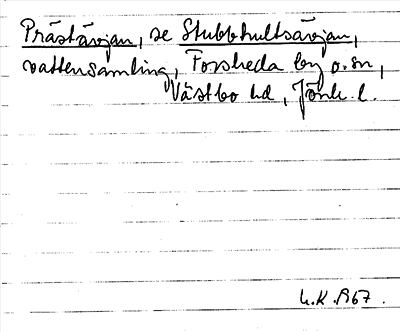 Prästävjan, se Stubbhultsävjan,
vattensamling, Forsheda by o. sn,
Västbo hd, Jönk. l.
L.K. 1967.